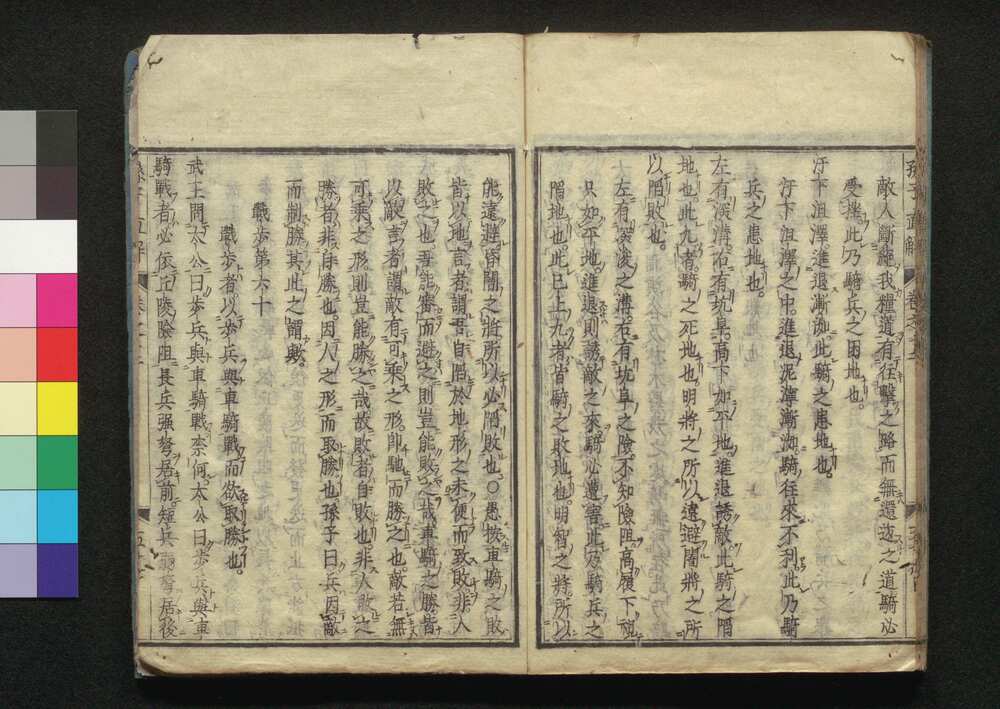 敵人斷絕我糧道有往擊之路而無還逃之道騎必
受挫此乃騎兵之困地也。
汙下沮澤。進退漸洳。此騎之患地也。
汙下沮澤之中。進退泥濘漸洳。騎往來不利。此乃騎
兵之患地也。
左有深溝。右有坑阜。高下如平地。進退誘敵。此騎之陷
地也。此九者。騎之死地也。明將之所以遠避。闇將之所
以陷敗也。
左有深浚之溝。右有坑阜之險。不知險阻高履下。視
只如平地。進退則誘敵之來。騎必遭害。此乃騎兵之
陷地也。此已上九者。皆騎之敗地也。明智之將。所以
能遠避。昏闇之將。所以必陷敗也。○愚按車騎之敗
皆以地言者。謂吾自陷於地形之未便而致敗。非人
敗之也。吾能審而避之。則豈能敗之哉。車騎之勝。皆
以敵言者。謂敵有可乘之形。卽馳而勝之也。敵若無
可乘之形。則豈能勝之哉。故敗者自敗也。非人敗之。
勝者非自勝也。因人之形而取勝也。孫子曰。兵因敵
而制勝。其此之謂歟。
戰步第六十
戰步者。以步兵與車騎戰。而欲取勝也。
武王問太公曰。步兵與車騎戰。柰何。太公曰。步兵與車
騎戰者。必依丘陵險阻。長兵强弩居前。短兵弱弩居後